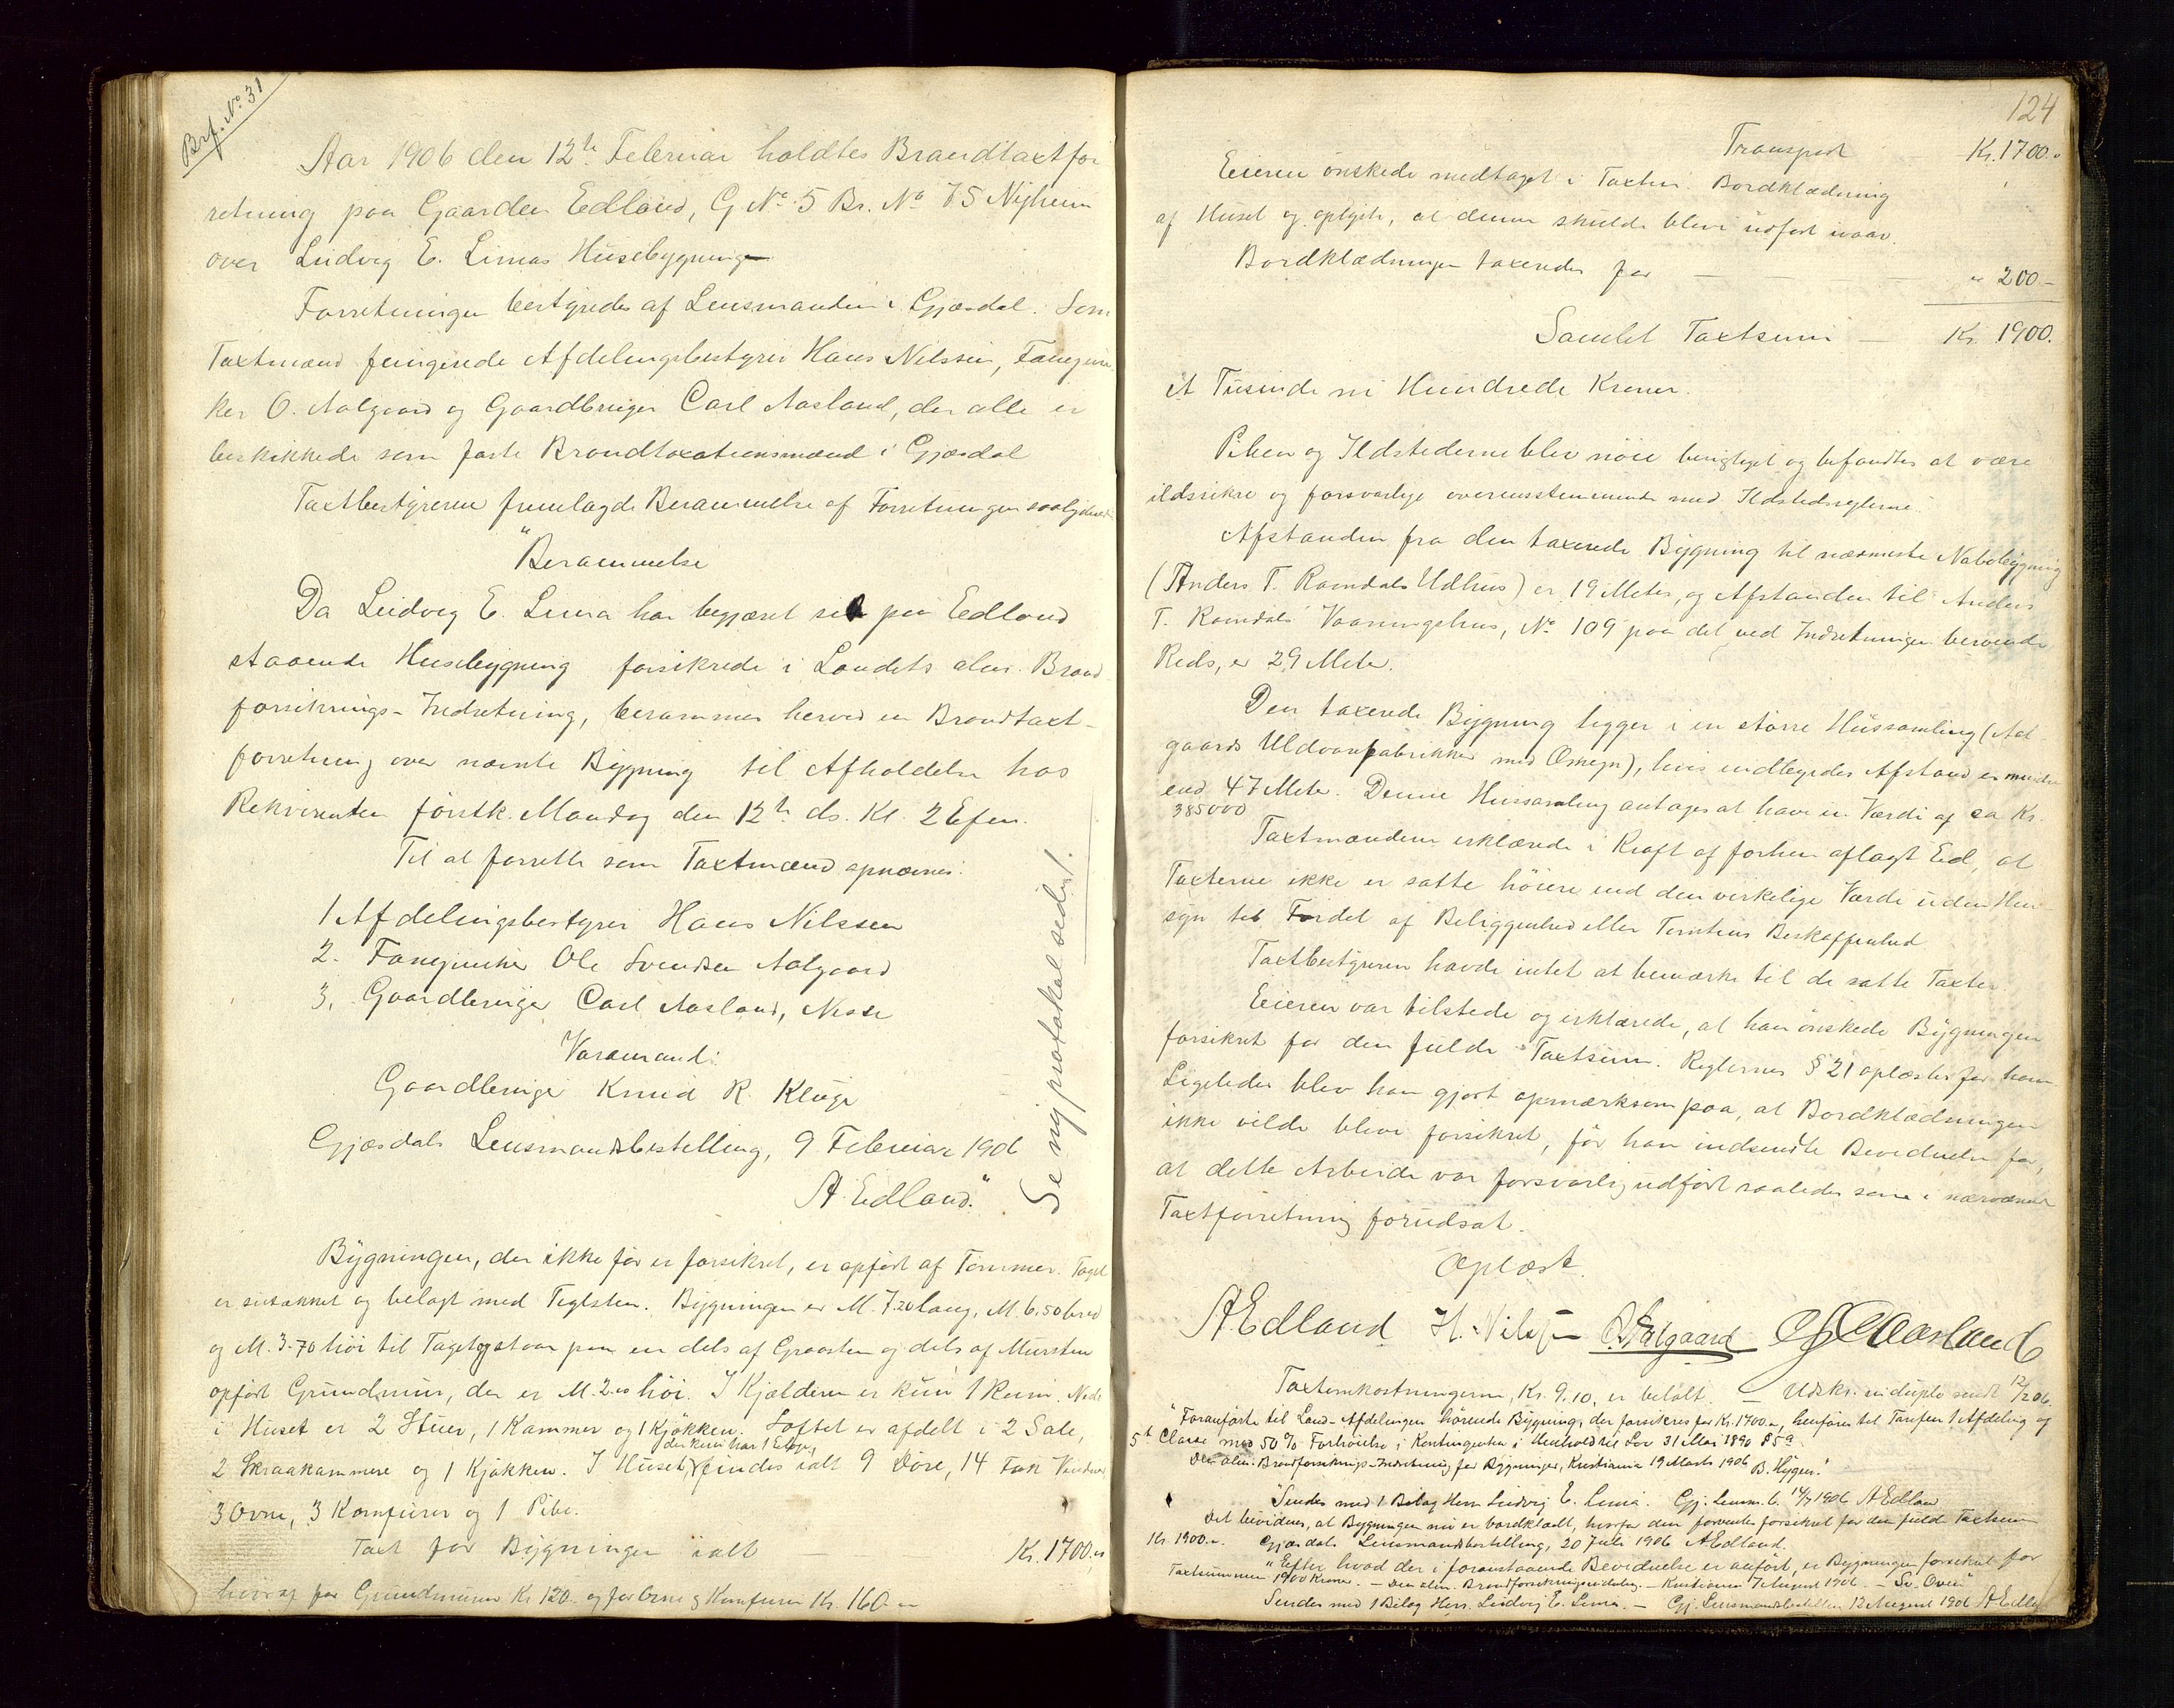 Brf. No. 31
Aar 1906 den 12te Februar holdtes Brandtaxtfor
retning paa Gaarden Edland, G No. 5 Br. No 75 Nyheim
over Ludvig E. Limas Husebygning
Forretningen bestyredes af Lensmanden i Gjæsdal. Som
Taxtmænd fungerede Afdelingsbestyrer Hans Nilssen, Fanejun-
ker O. Aalgaard og Gaardbruger Carl Aasland, der alle er
beskikkede som faste Brandtaxationsmænd i Gjæsdal
Taxtbestyreren fremlagde Berammelse af Forretningen saalydende
"Berammelse
Da Ludvig E. Lima har begjæret sit paa Edland
staaende Husebygning forsikrede i Landets alm. Brand
forsikrings-Indretning, berammes herved en Brandtaxt-
forretning over nævnte Bygning til Afholdelse hos
Rekvirenten førstk. Mandag den 12te ds. Kl. 2 Efm.
Til at forrette som Taxtmænd opnævnes:
1 Afdelingsbestyrer Hans Nilssen
2. Fanejunker Ole Svendsen Aalgaard
3. Gaardbruger Carl Aasland, Næse
Varamand:
Gaardbruger Knud R. Kluge
Gjæsdals Lensmandsbestilling, 9 Februar 1906
A Edland."
Se ny protokol sede 1.
Bygningen, der ikke før er forsikret, er opført af Tømmer. Taget
er sutakket og belagt med Teglsten. Bygningen er M. 7.20 lang, M. 6.50 bred
og M. 3.70 høi til Taget og staar paa en dels af Graasten og dels af Mursten
opført Grundmur, der er M. 2.00 høi. I Kjælderen er kun 1 Rum. Nede
i Huset er 2 Stuer, 1 Kammer og 1 Kjøkken. Loftet er afdelt i 2 Sale,
2 Skraakammere og 1 Kjøkken. I Huset, der kun har 1 Etage, findes ialt 9 Døre, 14 Fak Vinduer
3 Ovne, 3 Komfurer og 1 Pibe.
Taxt for Bygningen ialt — Kr. 1700.00
hvoraf for Grundmuren Kr 120.- og for Ovne og Komfurer Kr. 160.00
124
Transport Kr. 1700.-
Eieren ønskede medtaget i Taxten Bordklædning
af Huset og oplyste, at denne skulde blive udført ivaar.
Bordklædningen taxeredes for — — " 200-
Samlet Taxtsum — Kr. 1900.
et Tusinde ni Hundrede Kroner.
Piben og Ildstederne blev nøie besigtiget og befandtes at være
ildsikre og forsvarlige overensstemmende med Ildstedsreglerne.
Afstanden fra den taxerede Bygning til nærmeste Nabobygning
(Anders T. Ramdals Udhus) er 19 Meter, og Afstanden til Anders
T. Ramdals Vaaningshus, No. 109 paa det ved Indretningen beroende
Rids, er 29 Meter.
Den taxerede Bygning ligger i en større Hussamling (Aal-
gaards Uldvarefabrikker med Omegn), hvis indbyrdes Afstand er mindre
end 47 Meter. Denne Hussamling antages at have en Værdi af ca Kr.
385000
Taxtmændene erklærede i Kraft af forhen aflagt Eed, at
Taxterne ikke er satte høiere end den virkelige Værdi uden Hen-
syn til Fordel af Beliggenhed eller Tomtens Beskaffenhed
Taxtbestyreren havde intet at bemærke til de satte Taxter.
Eieren var tilstede og erklærede, at han ønskede Bygningen
forsikret for den fulde Taxtsum. Reglernes § 21 oplæstes for ham
Ligeledes blev han gjort opmærksom paa, at Bordklædningen
ikke vilde blive forsikret, før han indsendte Bevidnelse for,
at dette Arbeide var forsvarlig udført saaledes som i nærværende
Taxtforretning forudsat.
Oplæst.
A Edland H. Nilssen O. Aalgaard C Aasland
Taxtomkostningerne, Kr. 9.10, er betalt. — Udskr. in duplo sendt 12/2 06.
"Foranførte til Land-Afdelingen hørende Bygning, der forsikres for Kr. 1700.00, henføres til Tarifen 1 Afdeling og
5te Classe med 50% Forhøielse i Kontingenten i Henhold til Lov 31 Mai 1890 § 5 a.
Den alm. Brandforsikrings-Indretning for Bygninger, Kristiania 19 Marts 1906 B. Hygen."
Sendes med 1 Bilag Herr Ludvig E. Lima. Gj. Lensm. b. 14/7 1906 A Edland
Det bevidnes, at Bygningen nu er bordklædt, hvorfor den forventes forsikret for den fulde Taxtsum
Kr 1900.-. Gjæsdals Lensmandsbestilling, 20 Juli 1906 A Edland.
"Efter hvad der i foranstaaende Bevidnelse er anført, er Bygningen forsikret for
Taxtsummen 1900 Kroner. — Den alm. Brandforsikringsindretn. — Kristiania 7 August 1906. —
Sendes med 1 Bilag Herr. Ludvig E. Lima. — Gj. Lensmandsbestilling 12 August 1906 A Edland